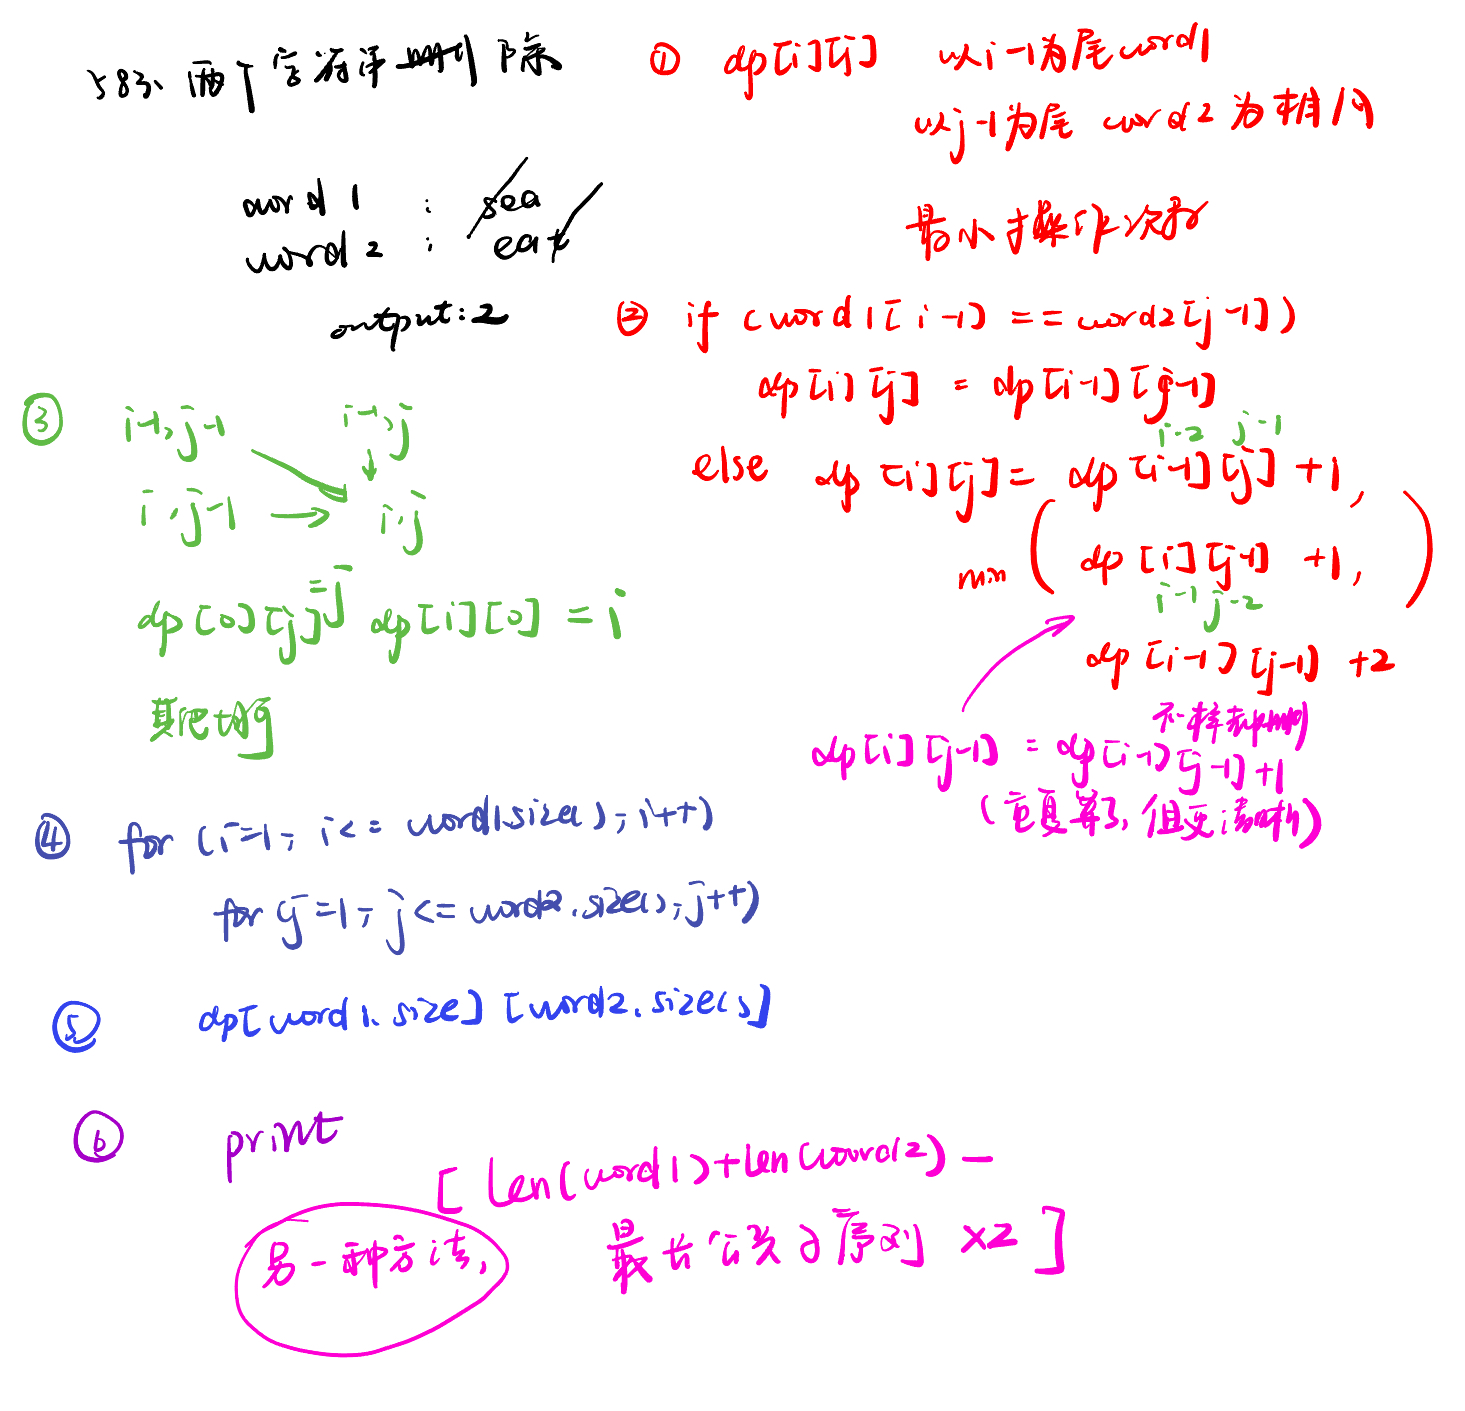 583、两个字符串删除
word 1 : sea
word 2 : eat
output: 2
① dp[i][j] 以i-1为尾word1
以j-1为尾 word2 为相同
最小操作次数
② if (word1[i-1] == word2[j-1])
dp[i][j] = dp[i-1][j-1]
i-2 j-1
else dp[i][j] = dp[i-1][j] +1,
min ( dp[i][j-1] +1, )
i-1 j-2
dp[i-1][j-1] +2
dp[i][j-1] = dp[i-1][j-1]+1
(重复算了, 但更清晰)
③ i-1,j-1 i-1,j
i,j-1 → i,j
dp[0][j]=j dp[i][0] = i
④ for (i=1; i<= word1.size(); i++)
for (j=1; j<= word2.size(); j++)
⑤ dp[word1.size][word2.size()]
⑥ print
另一种方法,
[ len(word1)+len(word2) -
最长公共子序列 ×2 ]